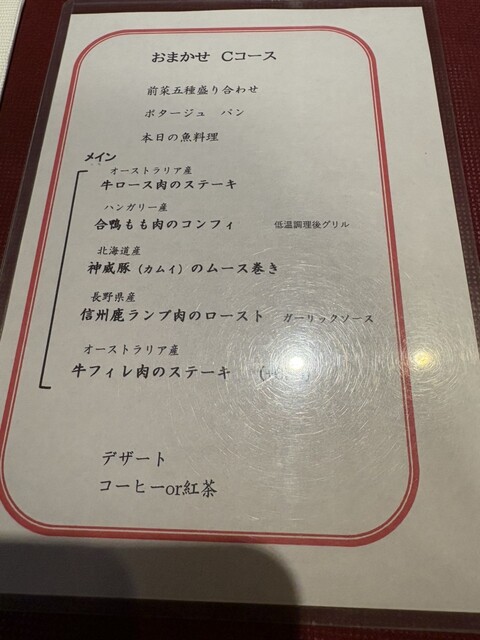 おまかせ Cコース
前菜五種盛り合わせ
ポタージュ パン
本日の魚料理
メイン
オーストラリア産
牛ロース肉のステーキ
ハンガリー産
合鴨もも肉のコンフィ 低温調理後グリル
北海道産
神威豚（カムイ）のムース巻き
長野県産
信州鹿ランプ肉のロースト ガーリックソース
オーストラリア産
牛フィレ肉のステーキ
デザート
コーヒーor紅茶